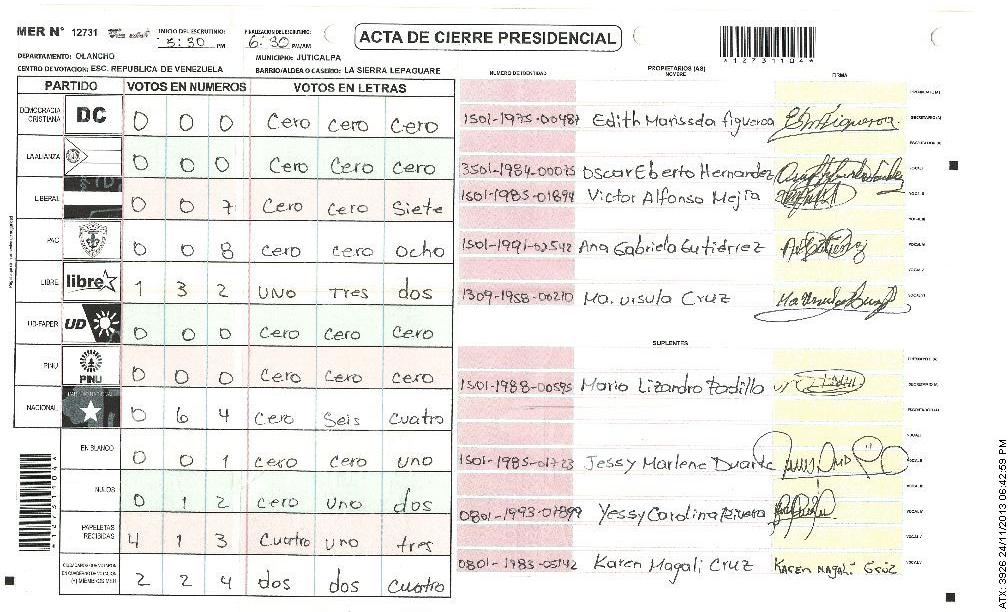 MER N° 12731
INICIO DEL ESCRUTINIO: 5:30 PM
FINALIZACION DEL ESCRUTINIO: 6:30 PM/AM
ACTA DE CIERRE PRESIDENCIAL
*12731104*
DEPARTAMENTO: OLANCHO
MUNICIPIO: JUTICALPA
CENTRO DE VOTACION: ESC. REPUBLICA DE VENEZUELA
BARRIO/ALDEA O CASERIO: LA SIERRA LEPAGUARE
PARTIDO VOTOS EN NUMEROS VOTOS EN LETRAS
DEMOCRACIA CRISTIANA DC 0 0 0 Cero cero cero
LA ALIANZA 0 0 0 Cero Cero cero
LIBERAL 0 0 7 Cero cero Siete
PAC 0 0 8 Cero cero ocho
LIBRE libre 1 3 2 UNO Tres dos
UD-FAPER UD 0 0 0 Cero cero Cero
PINU PINU 0 0 0 Cero Cero cero
NACIONAL 0 6 4 Cero Seis cuatro
EN BLANCO 0 0 1 cero cero uno
NULOS 0 1 2 Cero uno dos
PAPELETAS RECIBIDAS 4 1 3 Cuatro uno tres
2 2 4 dos dos cuatro
*12731104*
NUMERO DE IDENTIDAD
PROPIETARIOS (AS)
NOMBRE
FIRMA
1501-1975-00487 Edith Marissela figueroa
3501-1984-00075 Oscar Eberto Hernandez
1501-1985-01894 Victor Alfonso Mejia
1501-1991-02542 Ana Gabriela Gutiérrez
1309-1958-00210 Ma. ursula Cruz
SUPLENTES
1501-1988-00595 Mario Lizandro Padillo
1501-1985-01723 Jessy Marlene Duarte
0801-1993-01899 Yessy Carolina Rivera
0801-1983-05142 Karen Magali Cruz KAREN MAGALI CRUZ
ATX: 3926 24/11/2013 06:42:59 PM